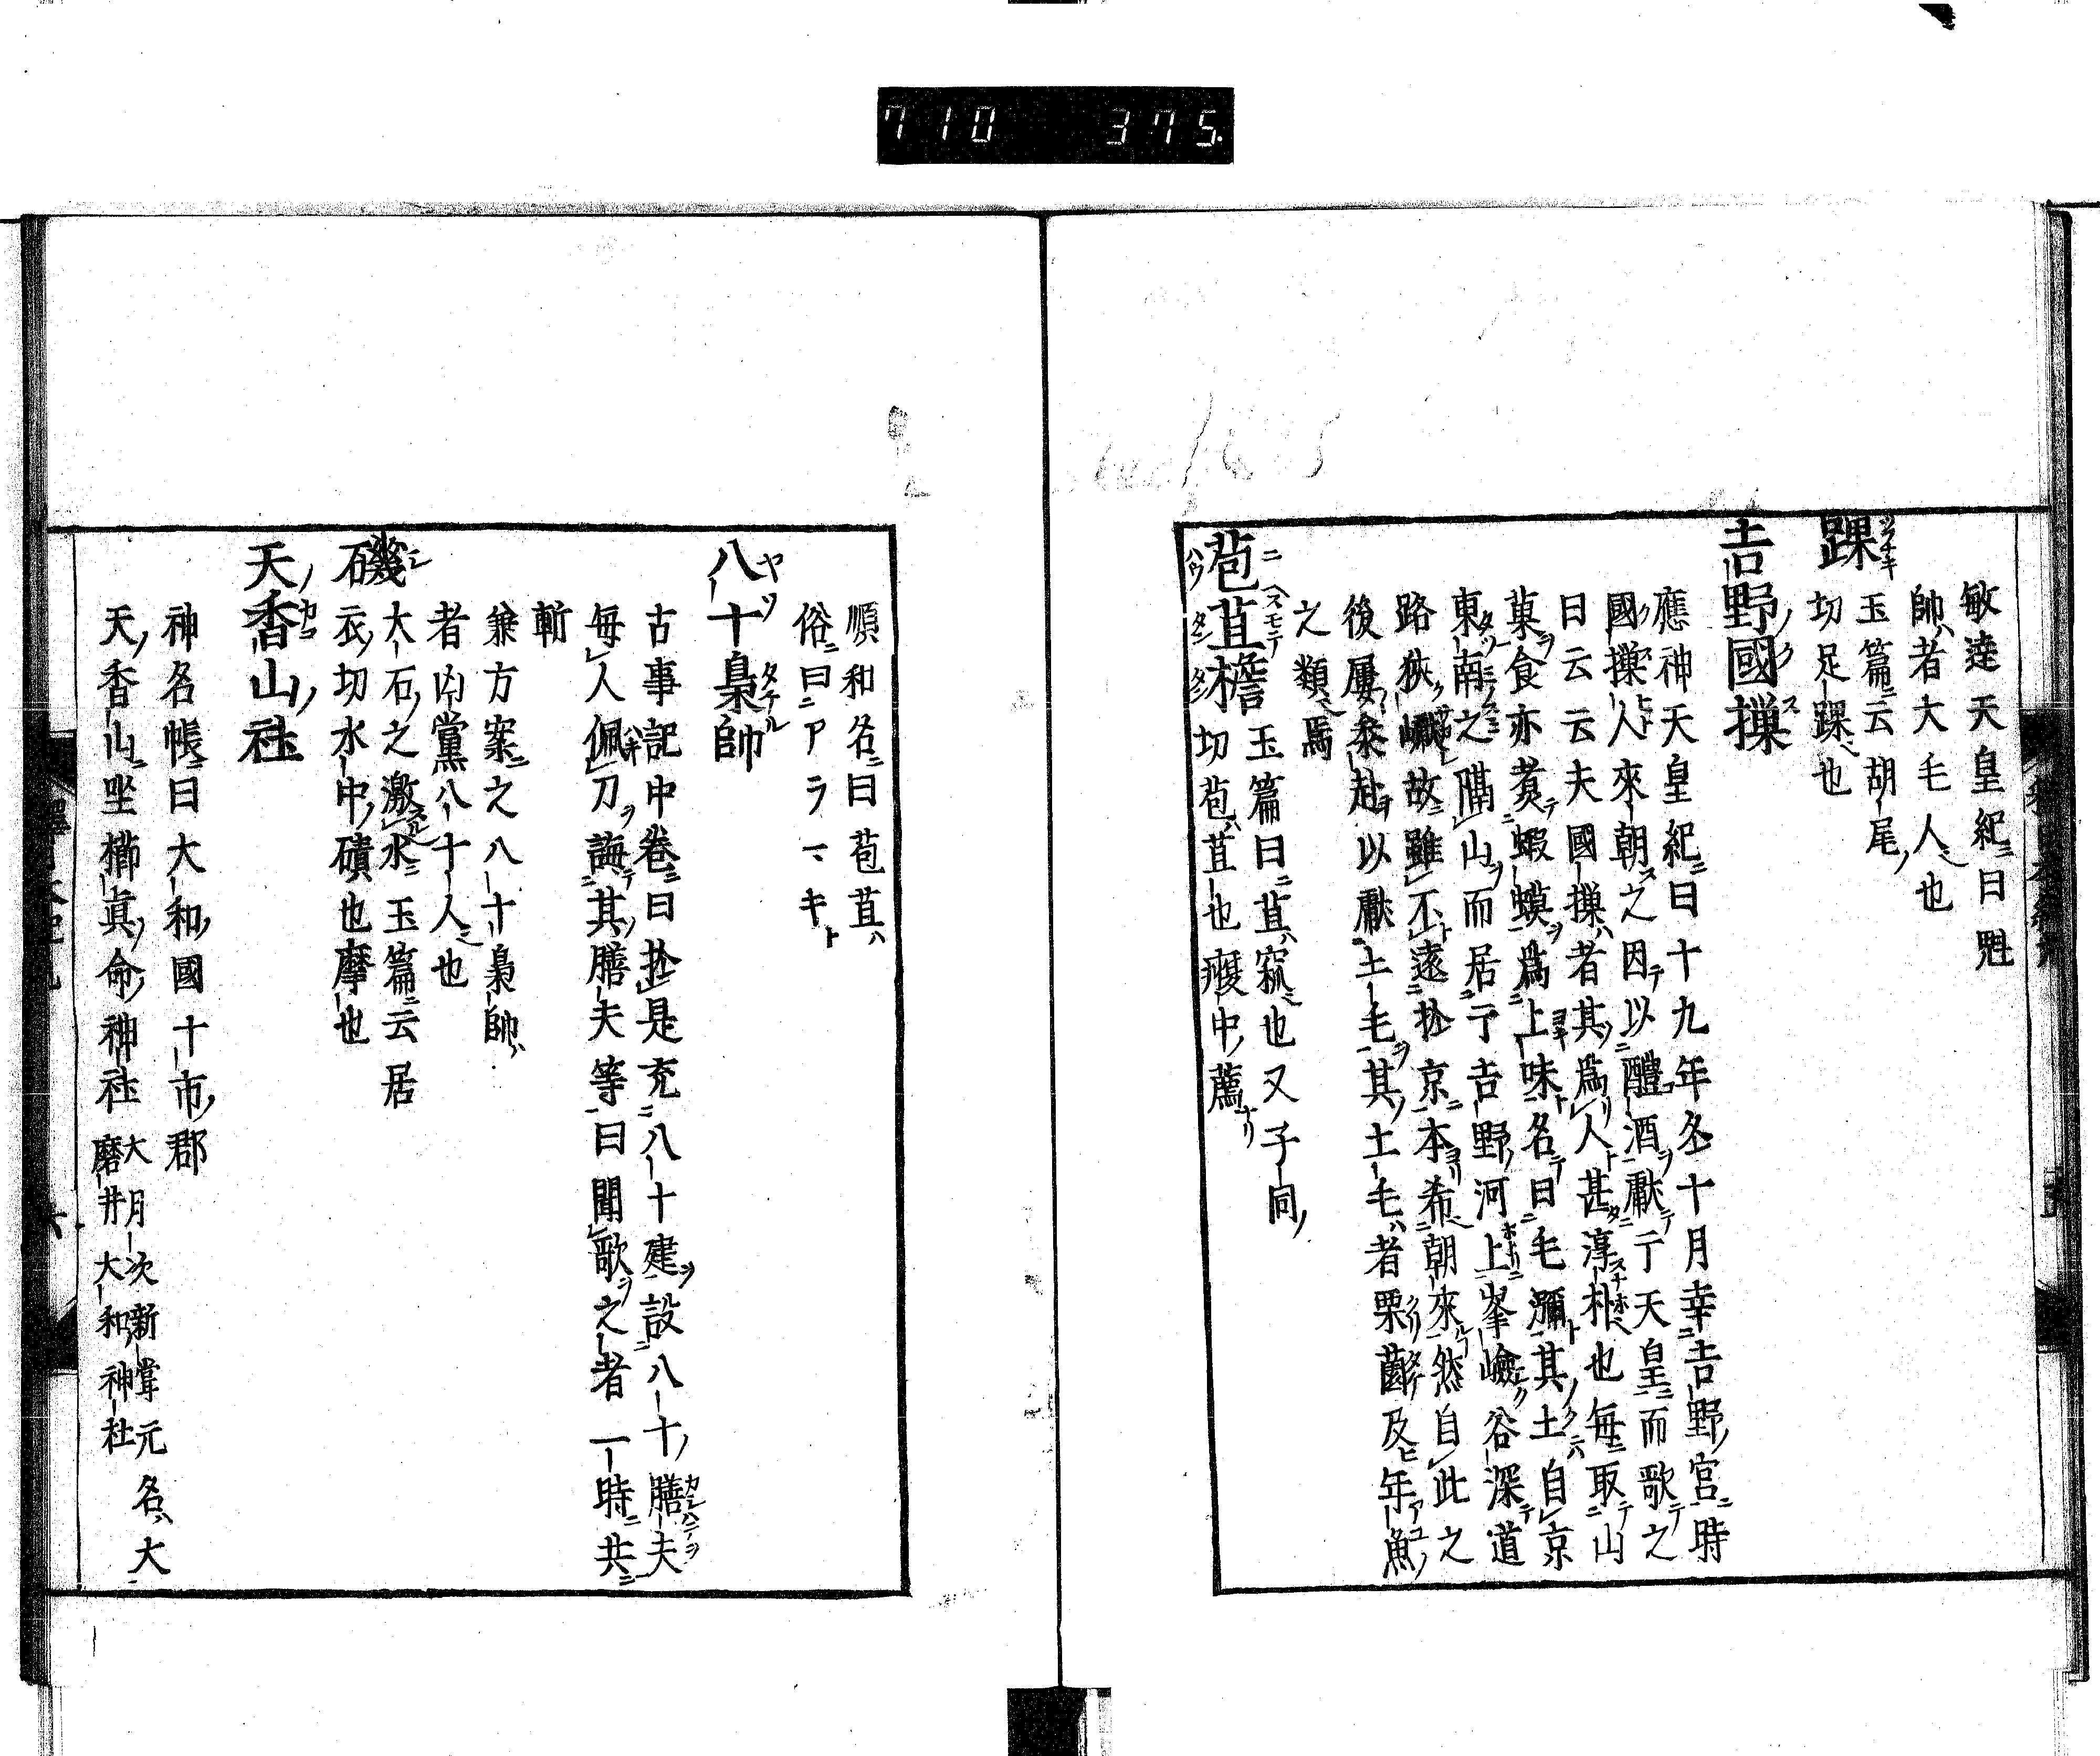 710 375.
敏達天皇紀曰魁
帥者大毛人也
踝
玉篇云胡尾
切足踝也
吉野國樔
應神天皇紀曰十九年冬十月幸吉野宮時
國樔人來朝之因以醴酒獻于天皇而歌之
曰云云夫國樔者其爲人甚淳朴也每取山
菓食亦煑蝦蟆爲上味名曰毛瀰其土自京
東南之隔山而居于吉野河上峯嶮谷深道
路狹巘故雖不遠於京本希朝來然自此之
後屢參赴以獻土毛其土毛者栗菌及年魚
之類焉
苞苴檐
玉篇曰苴窊也又子同
切苞苴也癁中薦
順和名曰苞苴
俗曰アラマキ
八十梟帥
古事記中卷曰於是充八十建設八十膳夫
每人佩刀誨其膳夫等曰聞歌之者一時共
斬
兼方案之八十梟帥
者凶黨八十人也
磯
大石之激水玉篇云居
衣切水中磧也摩也
天香山社
神名帳曰大和國十市郡
天香山坐櫛眞命神社 大月次新嘗元名大
磨井大和神社